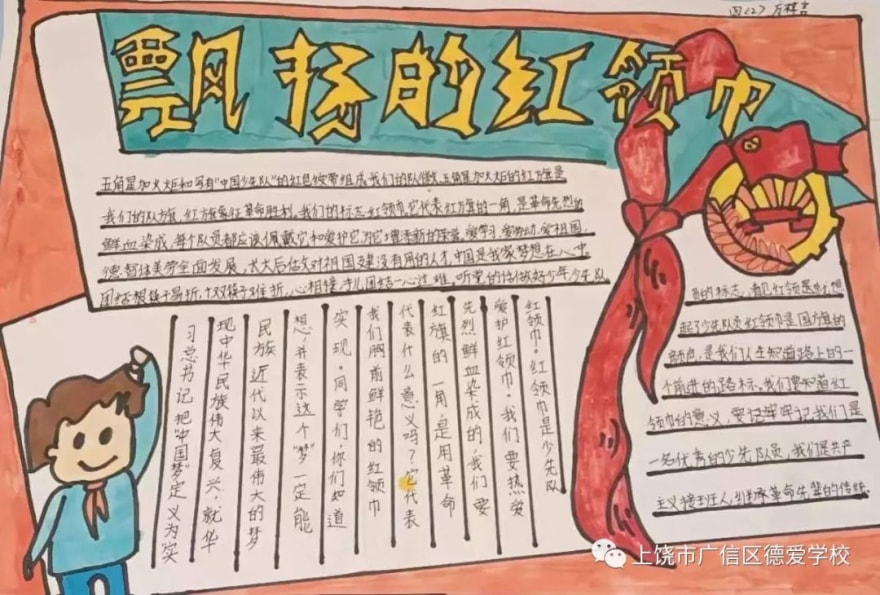 四(2) 万祥言
飘扬的红领巾
五角星加火炬和写有"中国少先队"的红色绶带组成我们的队徽、五角星加火炬的红旗是
我们的队旗,红旗象征革命胜利,我们的标志红领巾,它代表红旗的一角,是革命先烈的
鲜血染成,每个队员都应该佩戴它和爱护它,为它增添新的荣誉,爱学习,爱劳动,爱祖国.
德智体美劳全面发展,长大后作对祖国建设有用的人才,中国是我家梦想在心中,
团结 筷子易折,十双筷子难折,心相接 团结一心过难,听党的话做好少年少先队
红领巾。红领巾是少先队
爱护红领巾。我们要热爱
先烈鲜血染成的,我们要
红旗的一角,是用革命
代表什么意义吗?它代表
我们胸前鲜艳的红领巾
实现。同学们,你们知道
想,并表示这个"梦"一定能
民族近代以来最伟大的梦
现中华民族伟大复兴,就华
习总书记把"中国梦"定义为实
员的标志,看见红领是就想
起了少先队员红领巾是国方旗的
颜色,是我们人生知道路上的一
个前进的路标。我们要知道红
领巾的意义,要记牢牢记,我们是
一名优秀的少先队员,我们是共产
主义接班人,继承革命先辈的传统
上饶市广信区德爱学校